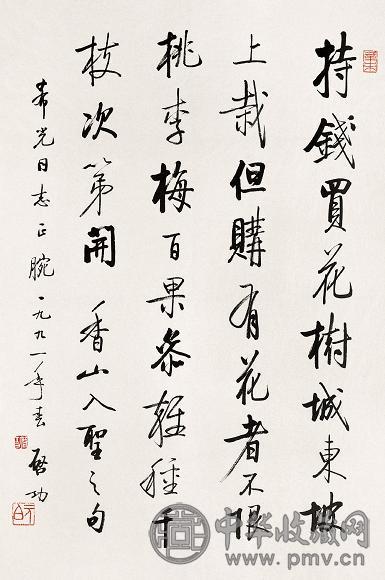 持錢買花樹城東坡
上栽但購有花者不限
桃李梅百果參雜種千
枝次第開 香山入聖之句
希光同志正腕 一九九一年春 啓功
中华收藏网
www.pmv.cn